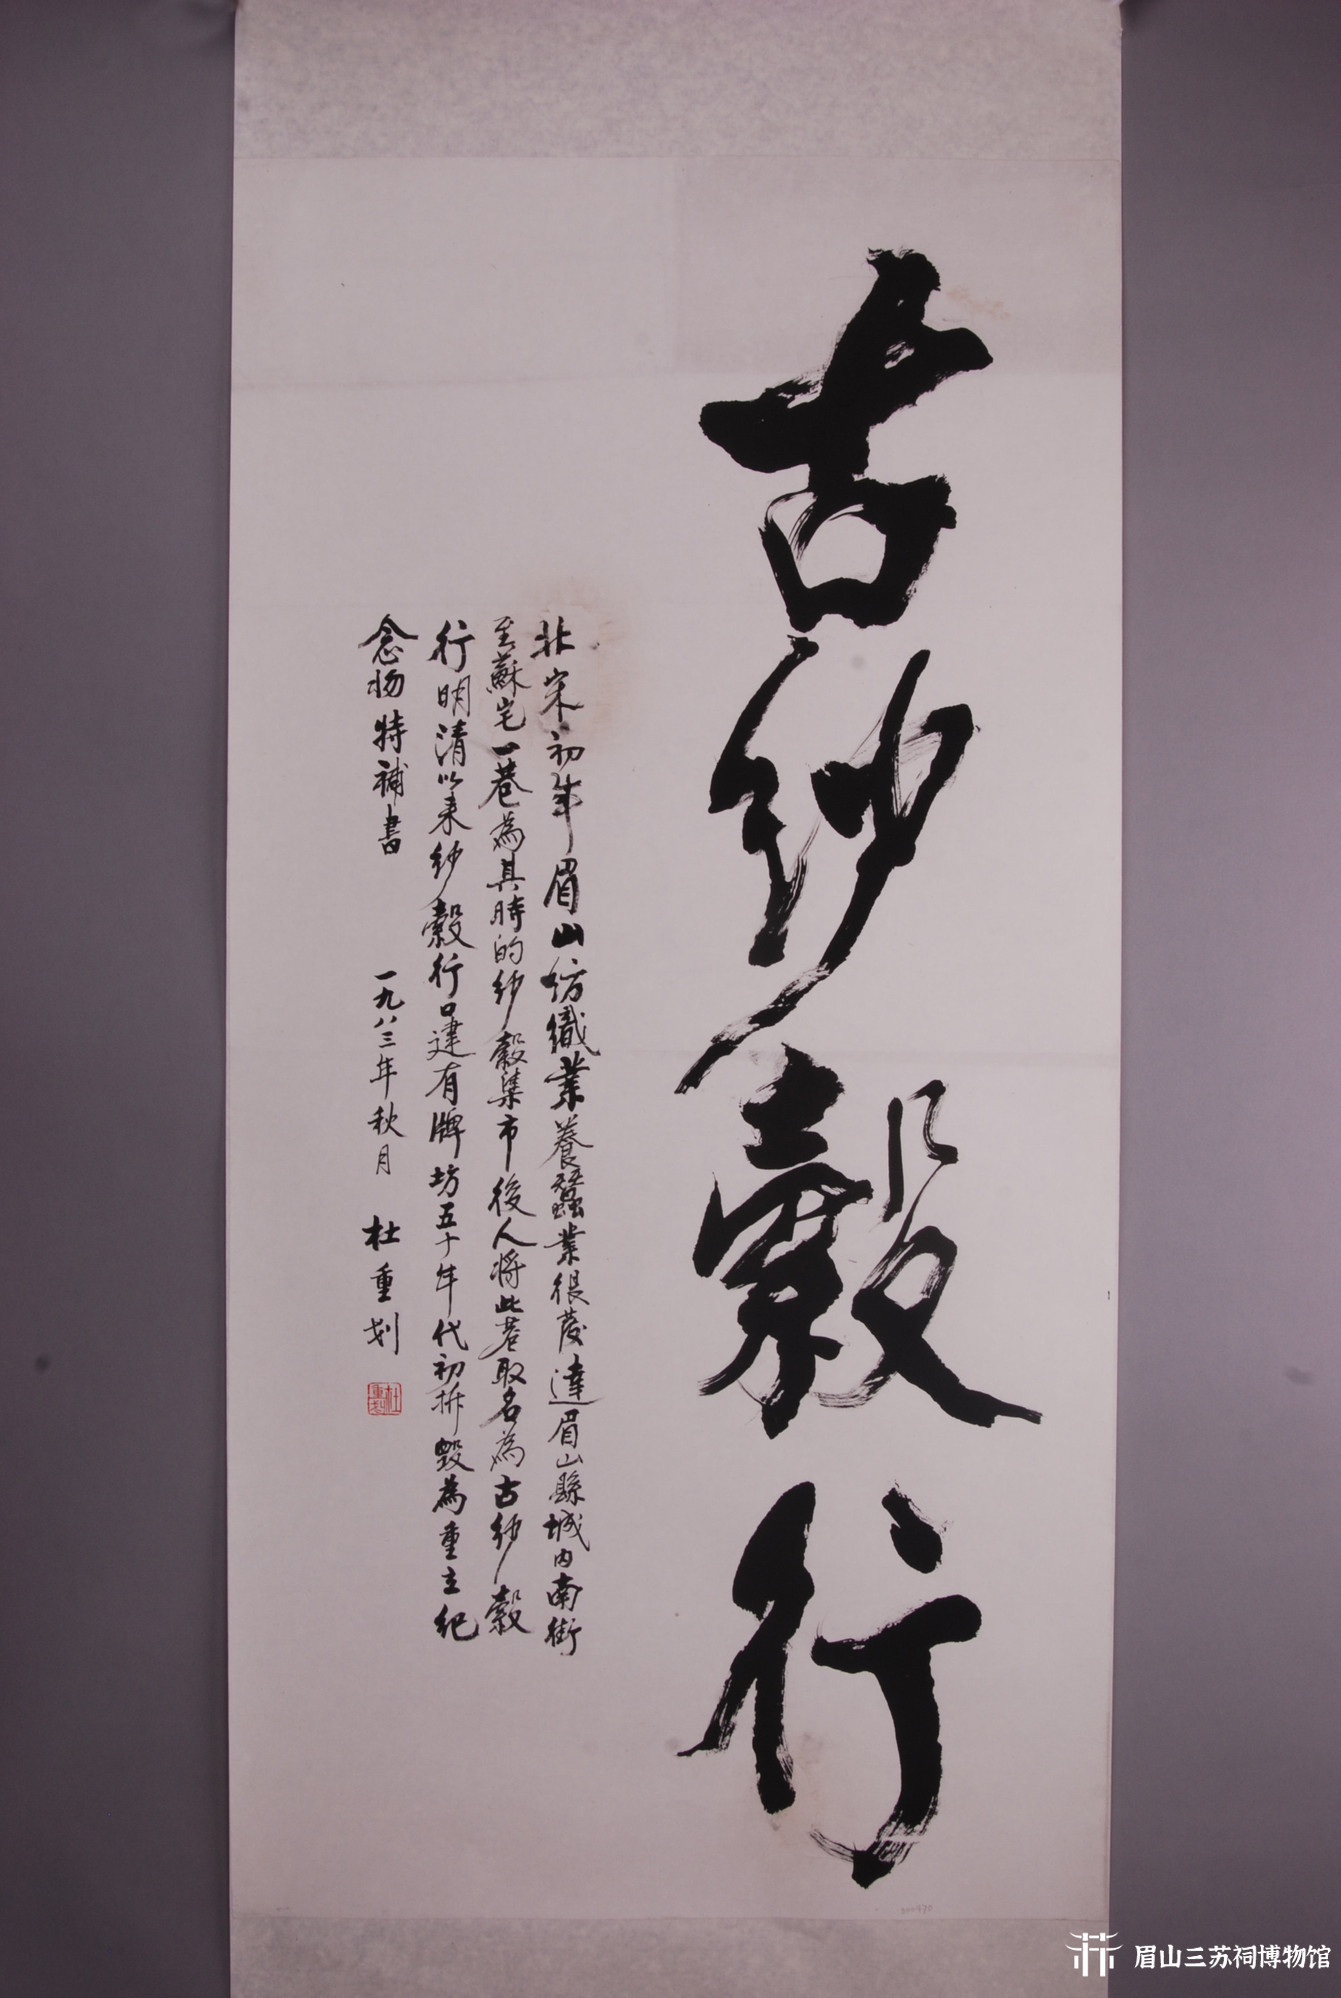 古纱縠行
北宋初年眉山纺織業養蠶業很发達眉山縣城内南街
至蘇宅一巷為其時的纱縠集市後人将此巷取名為古纱縠
行明清以来纱縠行口建有牌坊五十年代初拆毁為重立纪
念物特補書
一九八三年秋月 杜重划
杜重划
眉山三苏祠博物馆